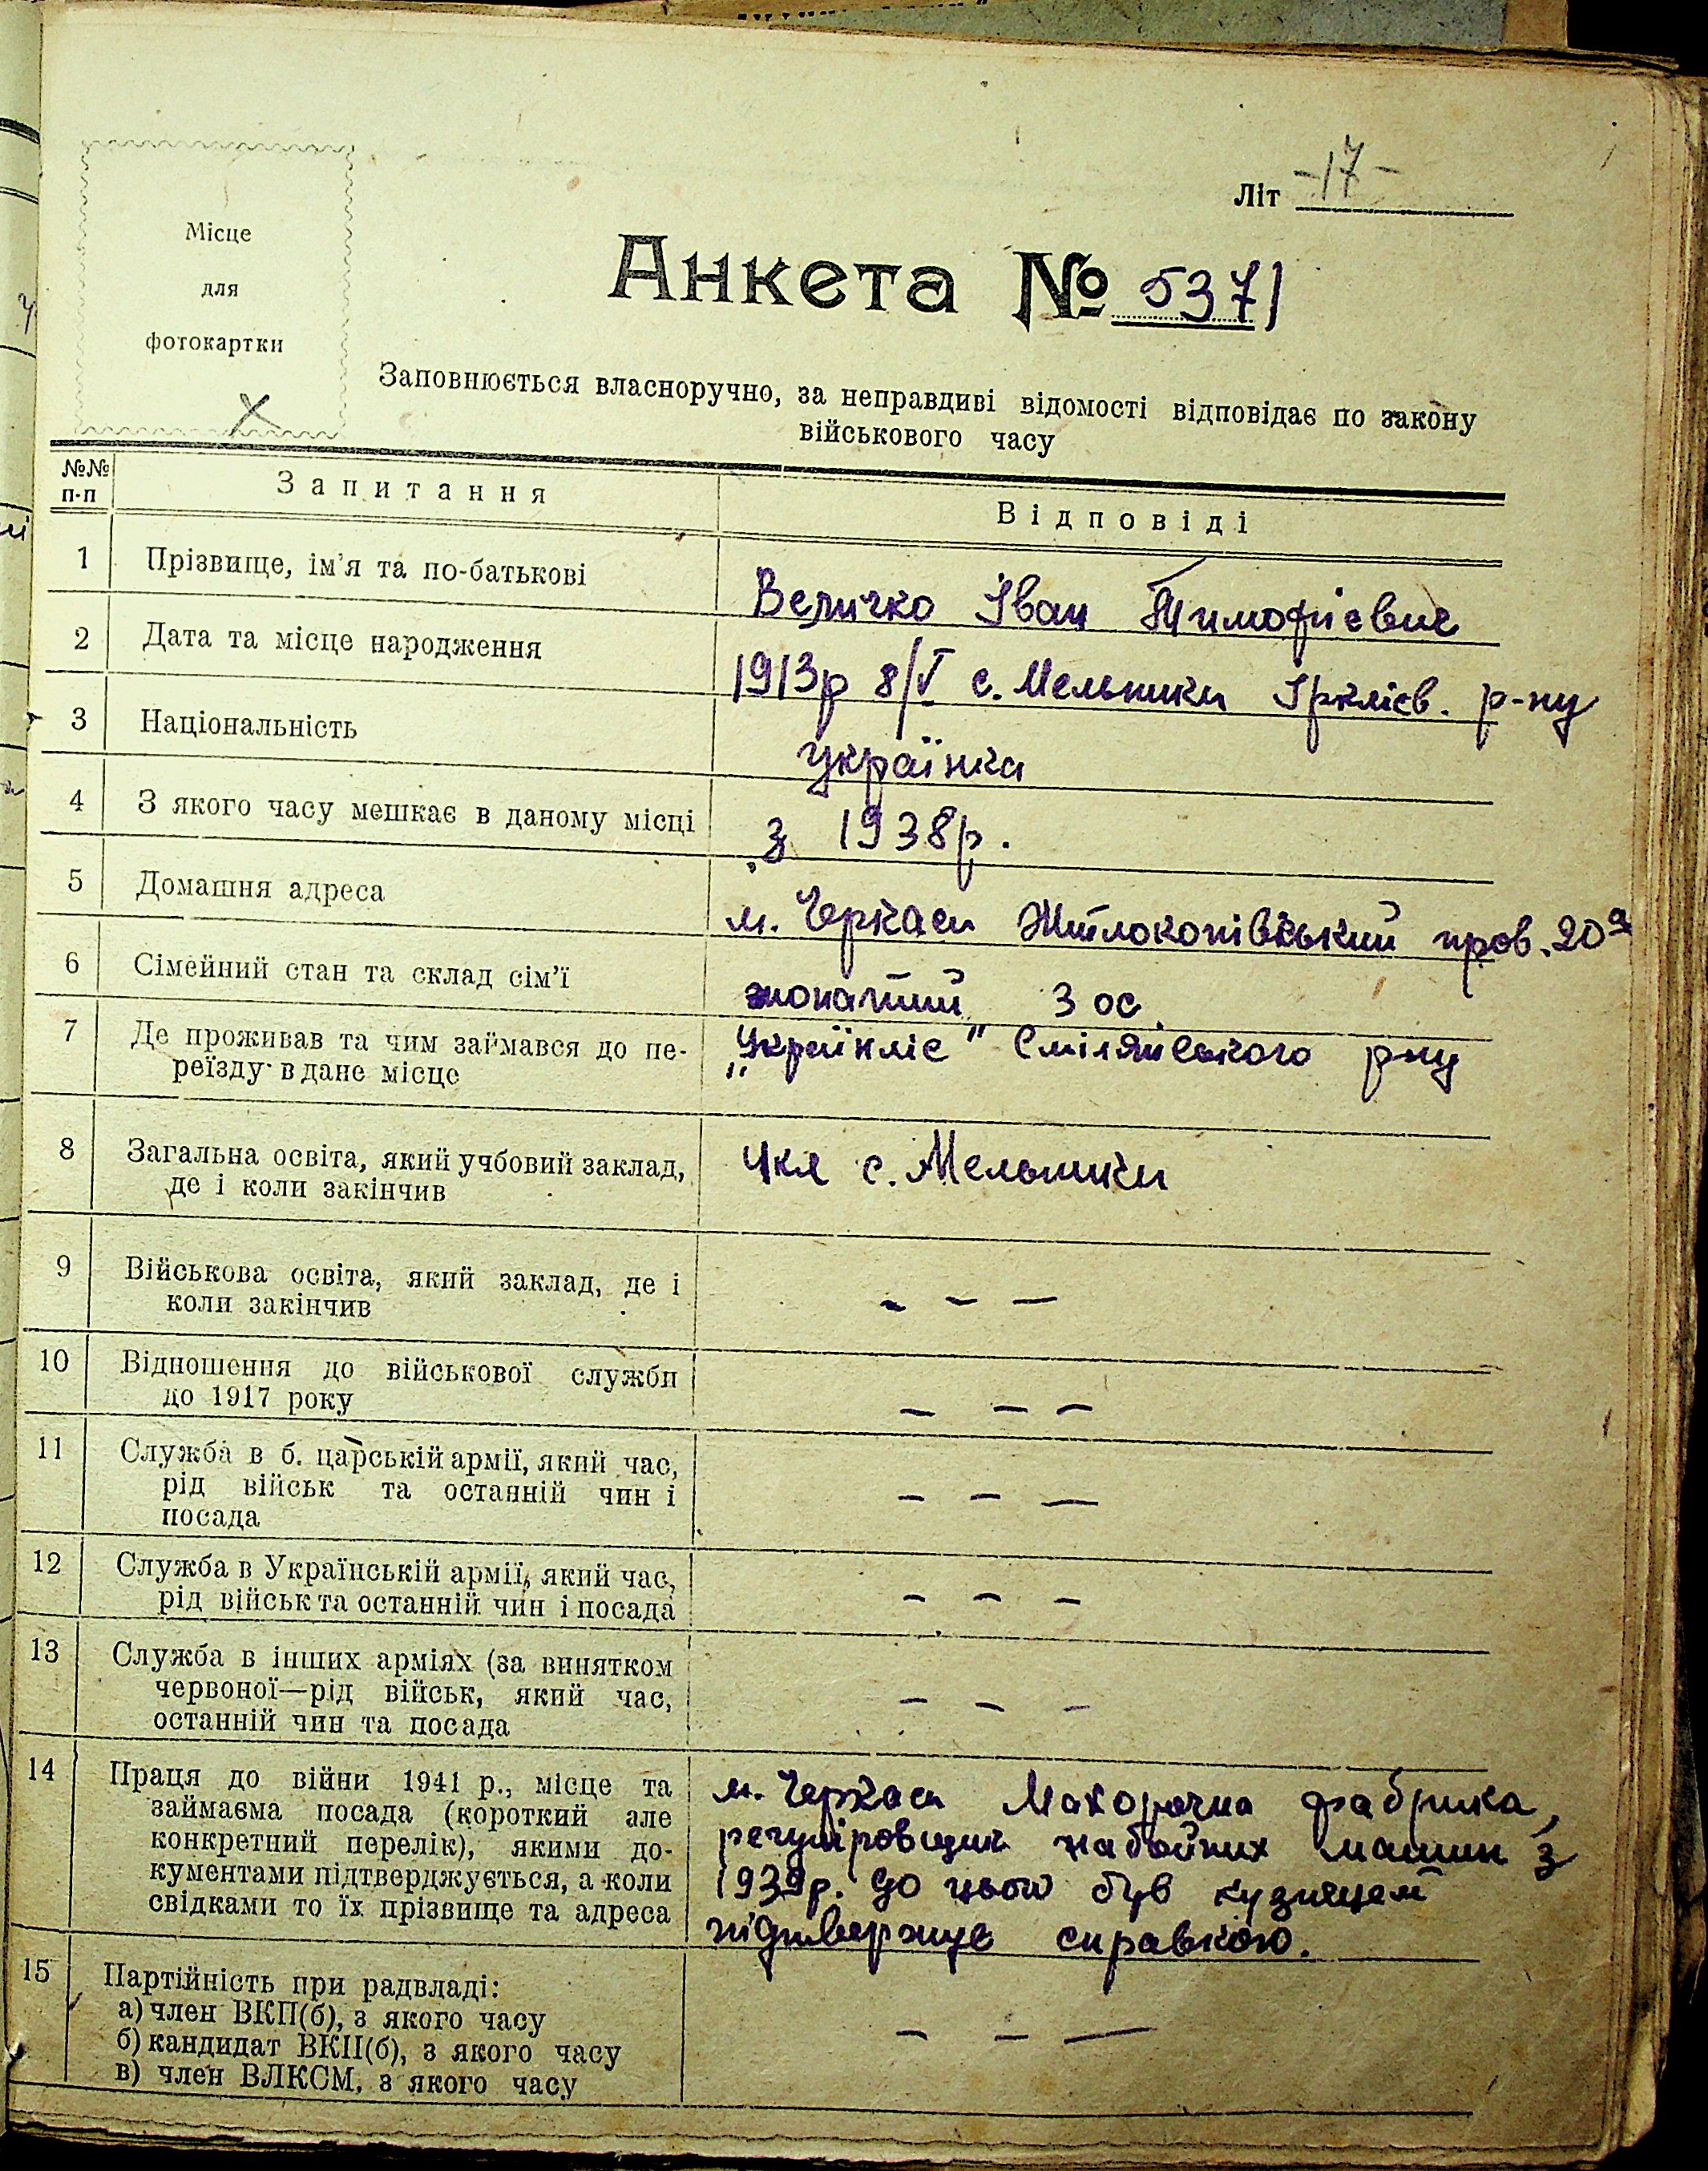 Літ -17-
Місце
для
фотокартки
Анкета № 5371
Заповнюється власноручно, за неправдиві відомості відповідає по закону
військового часу
№№ п-п
Запитання
Відповіді
1 Прізвище, ім'я та по-батькові
Величко Іван Тимофієвич
2 Дата та місце народження
1913р 8/V с. Мельники Іркліев. р-ну
3 Національність
українка
4 З якого часу мешкає в даному місці
з 1938р.
5 Домашня адреса
м. Черкаси пров. 20а
6 Сімейний стан та склад сім'ї
жонатий 3 ос.
7 Де проживав та чим займався до пе-
реїзду в дане місце
„Українліс" Смілянського рну
8 Загальна освіта, який учбовий заклад,
де і коли закінчив
4кл с. Мельники
9 Військова освіта, який заклад, де і
коли закінчив
- - -
10 Відношення до військової служби
до 1917 року
- - -
11 Служба в б. царській армії, який час,
рід військ та останній чин і
посада
- - -
12 Служба в Українській армії, який час,
рід військ та останній чин і посада
- - -
13 Служба в інших арміях (за винятком
червоної—рід військ, який час,
останній чин та посада
- - -
14 Праця до війни 1941 р., місце та
займаєма посада (короткий але
конкретний перелік), якими до-
кументами підтверджується, а коли
свідками то їх прізвище та адреса
м. Черкаси Махорочна фабрика,
регуліровщик набойних машин з
1939р. до цього був кузнецем
підтвержує справкою.
15 Партійність при радвладі:
а) член ВКП(б), з якого часу
б) кандидат ВКП(б), з якого часу
в) член ВЛКСМ, з якого часу
- - -